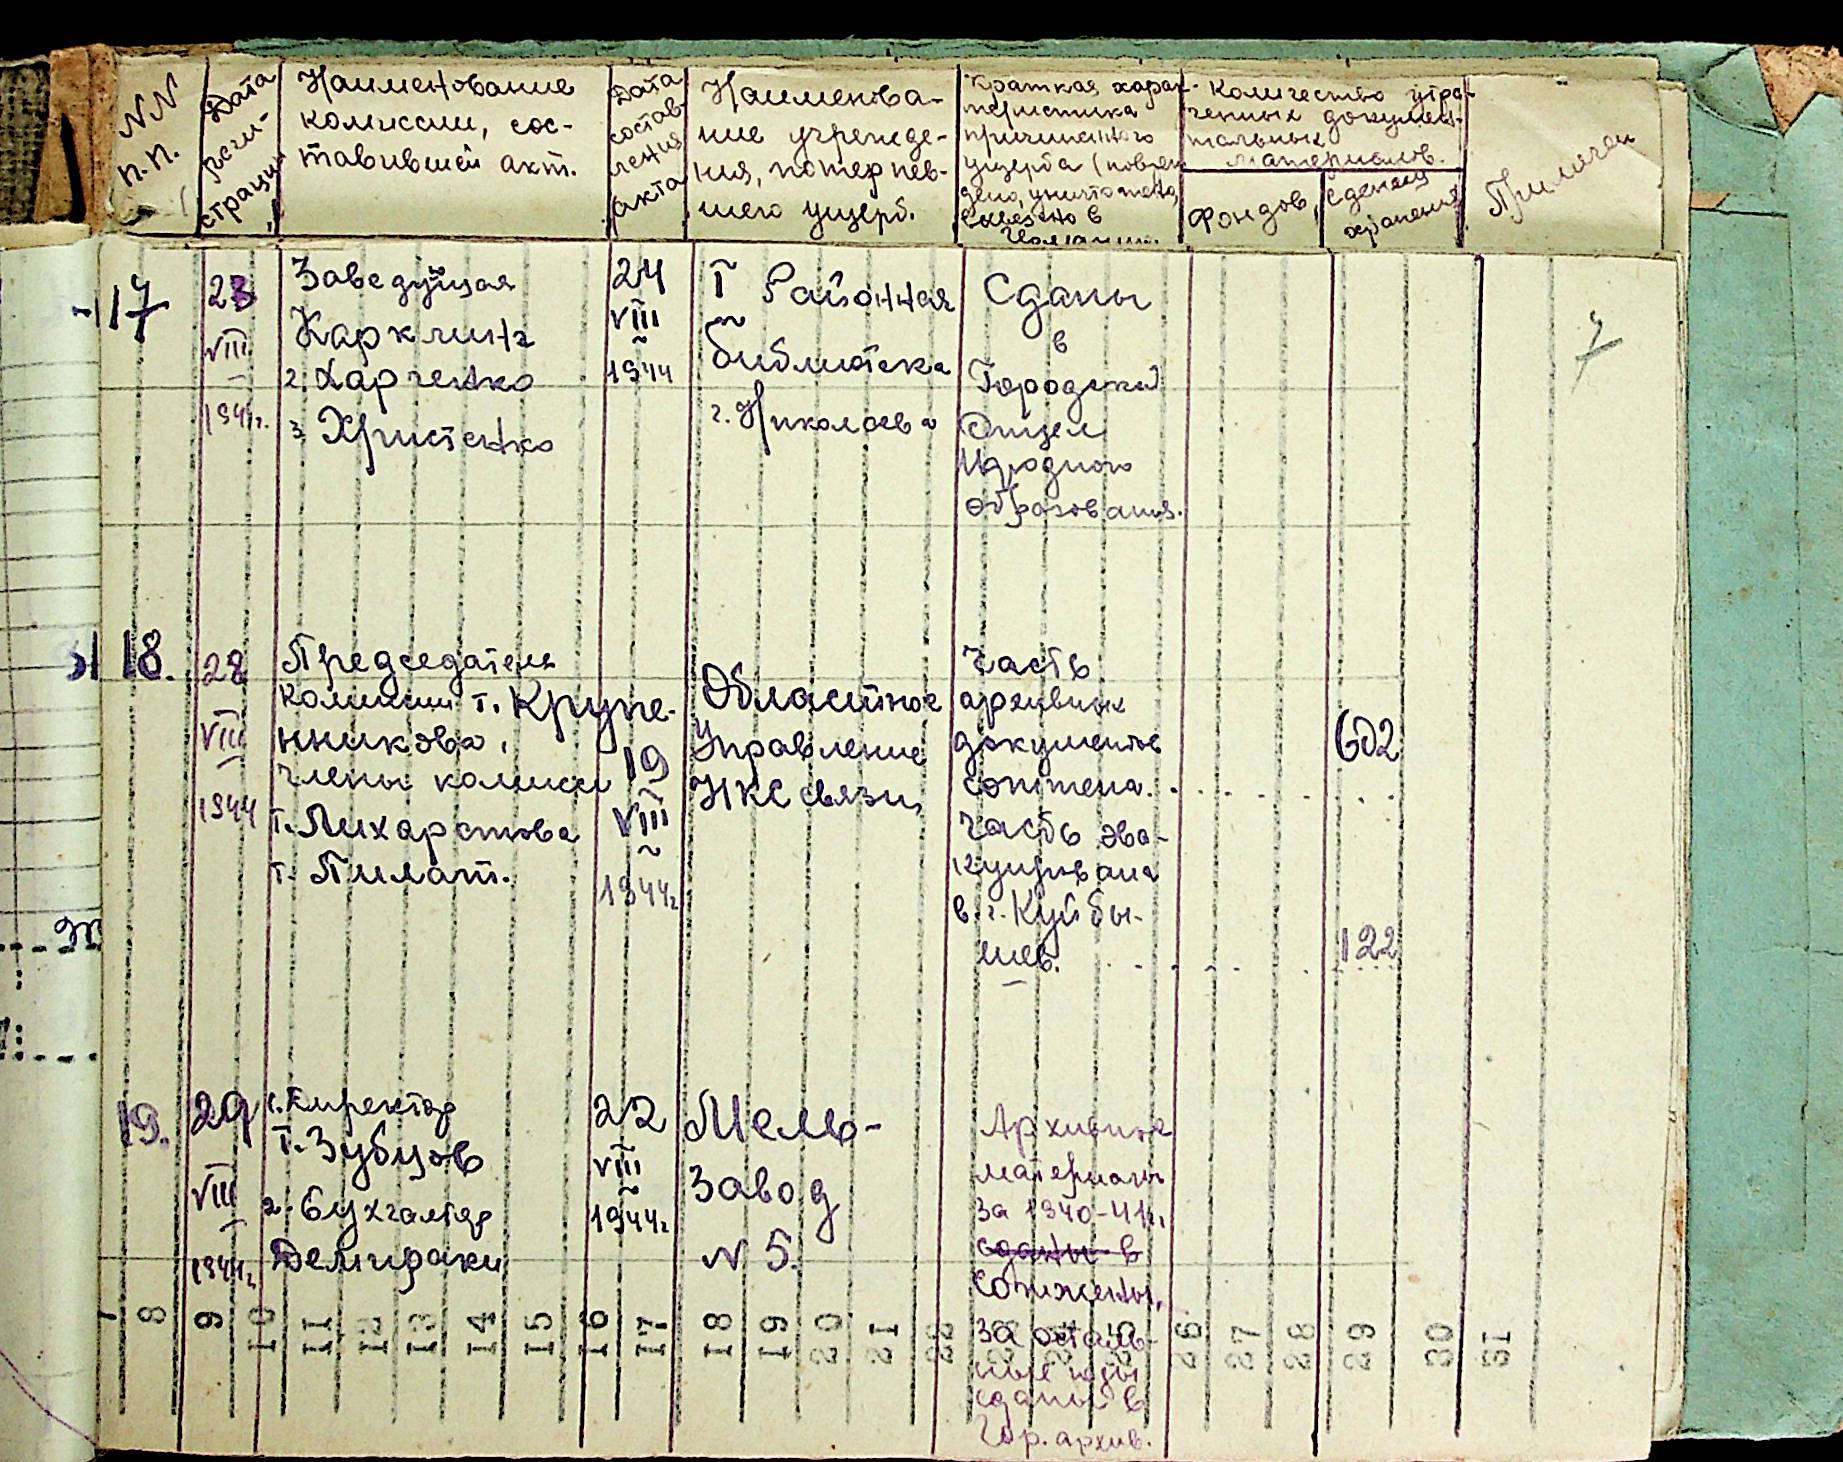 NN
п.п.
Дата
реги-
страции
Наименование
комиссии, сос-
тавившей акт.
Дата
состав-
ления
акта
Наименова-
ние учрежде-
ния, потерпев-
шего ущерб.
Краткая харак-
теристика
причиненного
ущерба (повреж
дено, уничтожено,
вывезено в
Германию.
Количество утра-
ченных докумен-
тальных
материалов.
Фондов,
Единиц
хранения
Примечан
17
23
VIII
1944г.
Заведующая
Карклина
2. Харченко
3 Христенко
24
VIII
1944
I Районная
библиотека
г. Николаева
Сданы
в
Городской
Отдел
Народного
образования.
7
18.
28
VIII
1944
Председатель
комиссии т. Крупе-
нникова,
члены комисси
т. Лихарстова
т. Пилат.
19
VIII
1944г
Областное
Управление
НКС связи,
Часть
архивных
документов
сожжена. . . . . . . .
602
Часть эва-
куирована
в г. Куйбы-
шев. . . . . . .
122
19.
29
VIII
1944г
1. Директор
т. Зубцов
2. бухгалтер
Делираки
22
VIII
1944г
Мель-
завод
N 5.
Архивные
материалы
за 1940-41г,
сданы в
сожжены,
за осталь-
ные годы
сданы в
Гор. архив.
7 8 9 10 11 12 13 14 15 16 17 18 19 20 21 22 23 24 25 26 27 28 29 30 31